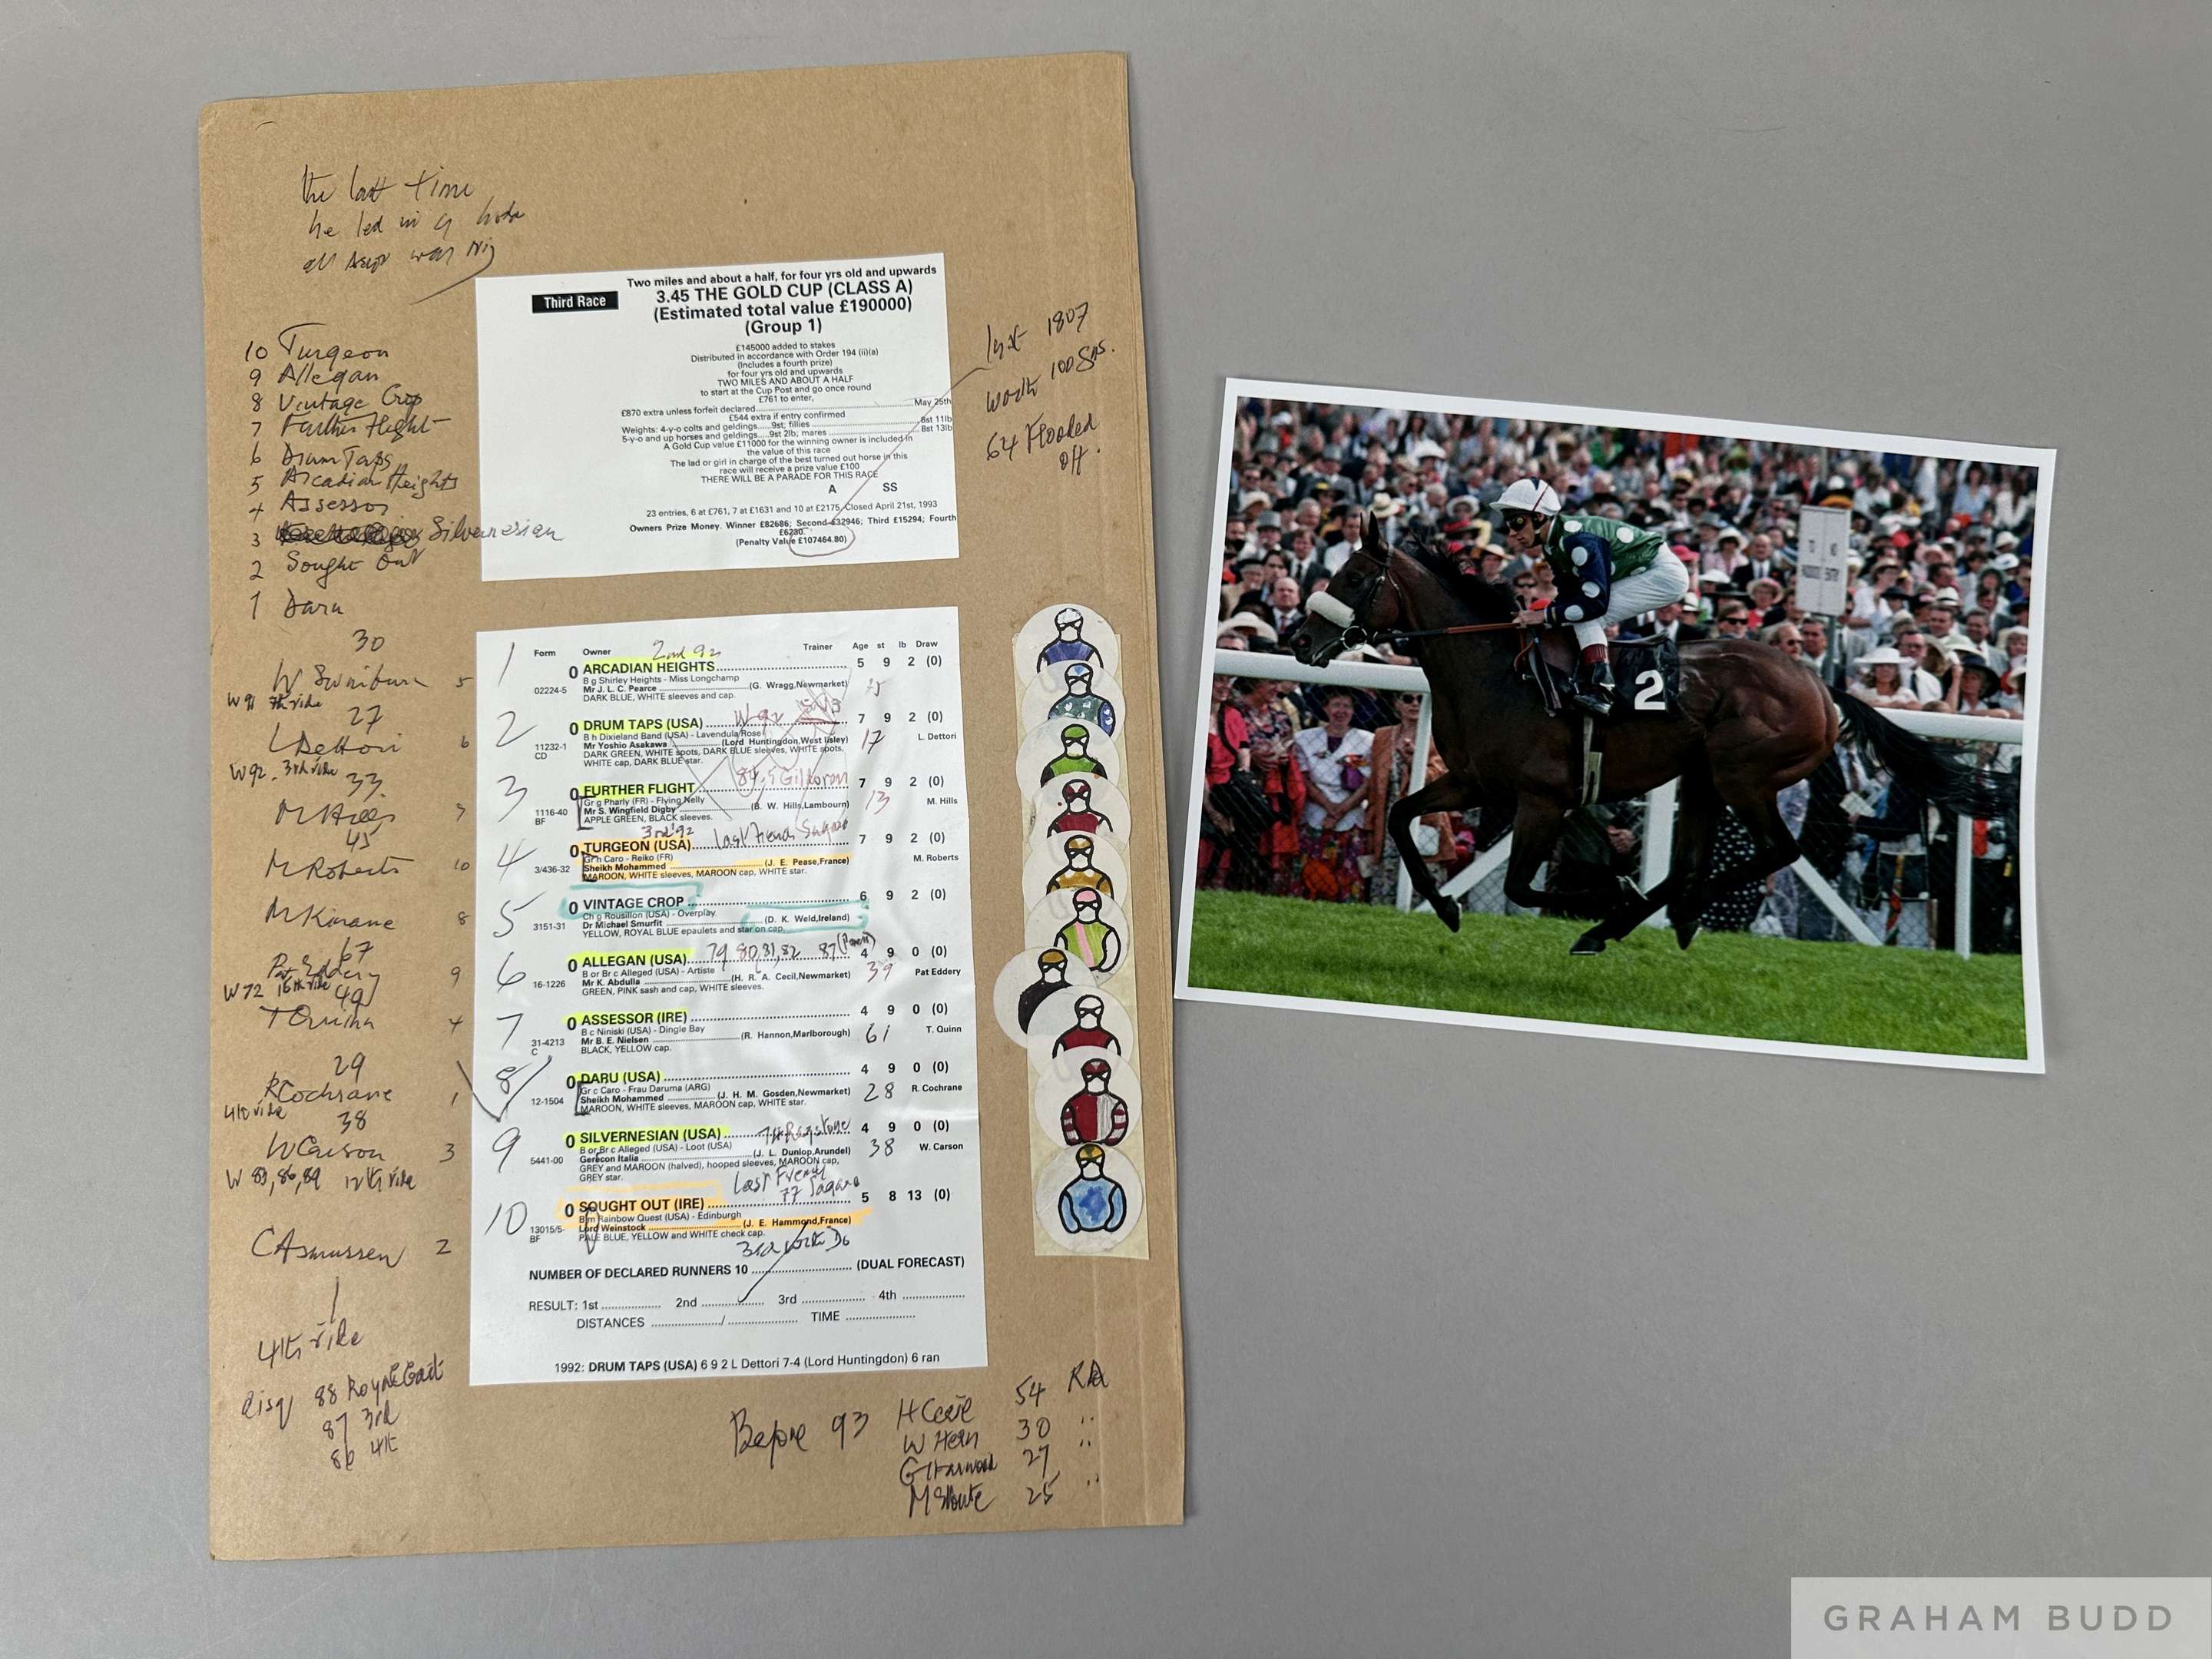 the last time
he led in a
was
Third Race
Two miles and about a half, for four yrs old and upwards
3.45 THE GOLD CUP (CLASS A)
(Estimated total value £190000)
(Group 1)
£145000 added to stakes
Distributed in accordance with Order 194 (ii)(a)
(Includes a fourth prize)
for four yrs old and upwards
TWO MILES AND ABOUT A HALF
to start at the Cup Post and go once round
£761 to enter,
£870 extra unless forfeit declared..........May 25th
£544 extra if entry confirmed
Weights: 4-y-o colts and geldings.....9st; fillies..........8st 11lb
5-y-o and up horses and geldings.....9st 2lb; mares..........8st 13lb
A Gold Cup value £11000 for the winning owner is included in
the value of this race
The lad or girl in charge of the best turned out horse in this
race will receive a prize value £100
THERE WILL BE A PARADE FOR THIS RACE
A SS
23 entries, 6 at £761, 7 at £1631 and 10 at £2175. Closed April 21st, 1993
Owners Prize Money. Winner £82686; Second £32946; Third £15294; Fourth
£6230.
(Penalty Value £107464.80)
1st 1807
worth 100 Gns.
64 Flooded
off.
10 Turgeon
9 Allegan
8 Vintage Crop
7 Further Flight
6 Drum Taps
5 Arcadian Heights
4 Assessor
3 Silvernesian
2 Sought Out
1 Daru
30
W Swinburn 5
W 91 7th ride
27
L Dettori 6
W92. 3rd ride
33
M Hills 7
45
M Roberts 10
M Kinane 8
67
Pat Eddery 9
W72 16th ride
49
T Quinn 4
29
R Cochrane 1
4th ride
38
W Carson 3
W 83, 86, 89 12th ride
C Asmussen 2
4th ride
disq 88 Royal Gait
87 3rd
86 4th
Form Owner 2nd 92 Trainer Age st lb Draw
1 0 ARCADIAN HEIGHTS.......... 5 9 2 (0)
B g Shirley Heights - Miss Longchamp
02224-5 Mr J. L. C. Pearce ..........(G. Wragg,Newmarket)
DARK BLUE, WHITE sleeves and cap.
2 0 DRUM TAPS (USA) .......... W 92 7 9 2 (0)
B h Dixieland Band (USA) - Lavendula Rose
11232-1 Mr Yoshio Asakawa ..........(Lord Huntingdon,West Ilsley) 17 L. Dettori
CD DARK GREEN, WHITE spots, DARK BLUE sleeves, WHITE spots,
WHITE cap, DARK BLUE star.
3 0 FURTHER FLIGHT .......... 7 9 2 (0)
Gr g Pharly (FR) - Flying Nelly
1116-40 Mr S. Wingfield Digby ..........(B. W. Hills,Lambourn) 13 M. Hills
BF APPLE GREEN, BLACK sleeves.
3rd 92 Last French Sagaro
4 0 TURGEON (USA).......... 7 9 2 (0)
Gr h Caro - Reiko (FR)
3/436-32 Sheikh Mohammed ..........(J. E. Pease,France) M. Roberts
MAROON, WHITE sleeves, MAROON cap, WHITE star.
5 0 VINTAGE CROP .......... 6 9 2 (0)
Ch g Rousillon (USA) - Overplay
3151-31 Dr Michael Smurfit ..........(D. K. Weld,Ireland)
YELLOW, ROYAL BLUE epaulets and star on cap.
79 80, 81, 82 87
6 0 ALLEGAN (USA).......... 4 9 0 (0)
B or Br c Alleged (USA) - Artiste
16-1226 Mr K. Abdulla ..........(H. R. A. Cecil,Newmarket) 39 Pat Eddery
GREEN, PINK sash and cap, WHITE sleeves.
7 0 ASSESSOR (IRE) .......... 4 9 0 (0)
B c Niniski (USA) - Dingle Bay
31-4213 Mr B. E. Nielsen ..........(R. Hannon,Marlborough) 61 T. Quinn
C BLACK, YELLOW cap.
8 0 DARU (USA) .......... 4 9 0 (0)
Gr c Caro - Frau Daruma (ARG)
12-1504 Sheikh Mohammed ..........(J. H. M. Gosden,Newmarket) 28 R. Cochrane
MAROON, WHITE sleeves, MAROON cap, WHITE star.
9 0 SILVERNESIAN (USA) .......... 4 9 0 (0)
B or Br c Alleged (USA) - Loot (USA)
5441-00 Gerecon Italia ..........(J. L. Dunlop,Arundel) 38 W. Carson
GREY and MAROON (halved), hooped sleeves, MAROON cap,
GREY star.
Last French
77 Sagaro
10 0 SOUGHT OUT (IRE) .......... 5 8 13 (0)
B m Rainbow Quest (USA) - Edinburgh
13015/5- Lord Weinstock ..........(J. E. Hammond,France)
BF PALE BLUE, YELLOW and WHITE check cap.
NUMBER OF DECLARED RUNNERS 10 .......... (DUAL FORECAST)
RESULT: 1st .......... 2nd .......... 3rd .......... 4th ..........
DISTANCES ........../.......... TIME ..........
1992: DRUM TAPS (USA) 6 9 2 L Dettori 7-4 (Lord Huntingdon) 6 ran
Before 93 H Cecil 54 RA
W Hern 30 "
G Harwood 27 "
M Stoute 25 "
2
GRAHAM BUDD